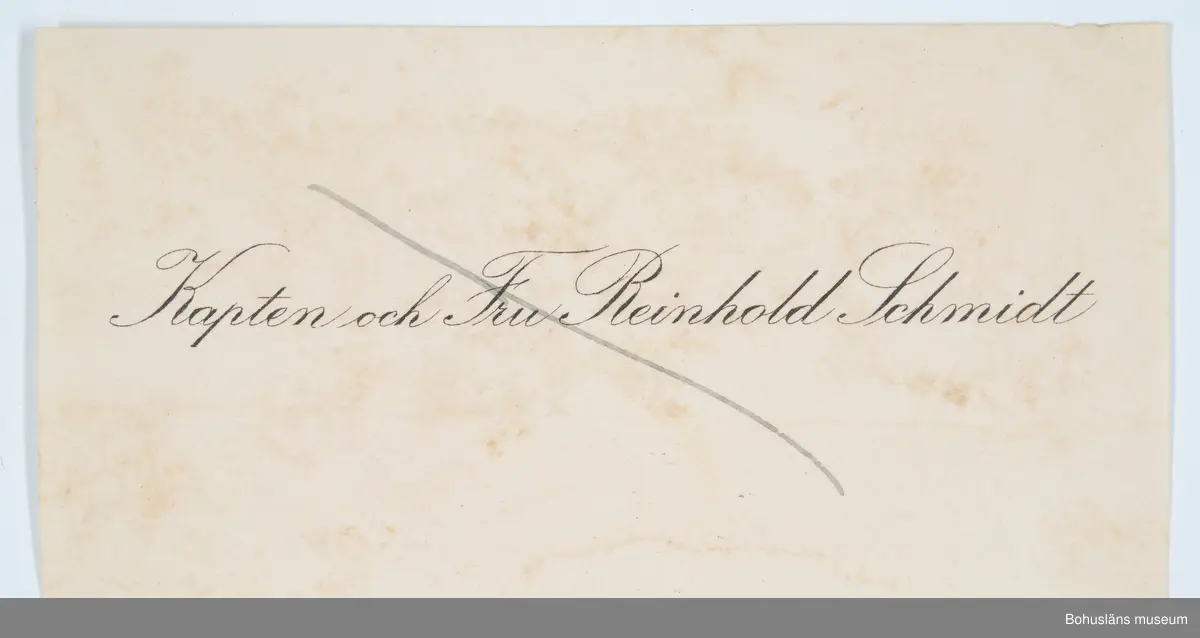 Kapten och Fru Reinhold Schmidt
Bohusläns museum